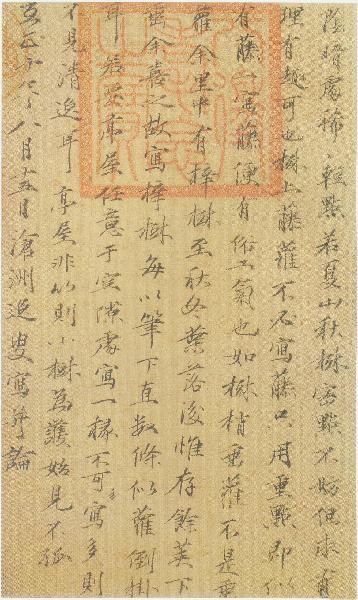 陰暗處稀輕點若夏山秋樹密點不妨但求有
理有趣可也樹上藤蘿不必寫藤只用重點即似
有藤一寫藤便有俗工氣也如樹梢垂蘿不是重
蘿余里中有梓樹至秋冬葉落後惟存餘莢下
垂余喜之故寫梓樹每以筆下直數條似蘿倒掛
耳若要亭屋任意于空隙處寫一稼不可寫多多則
不見清逸耳亭屋非以則小樹為護始見不孤
八月十五日滄洲逸叟寫并論